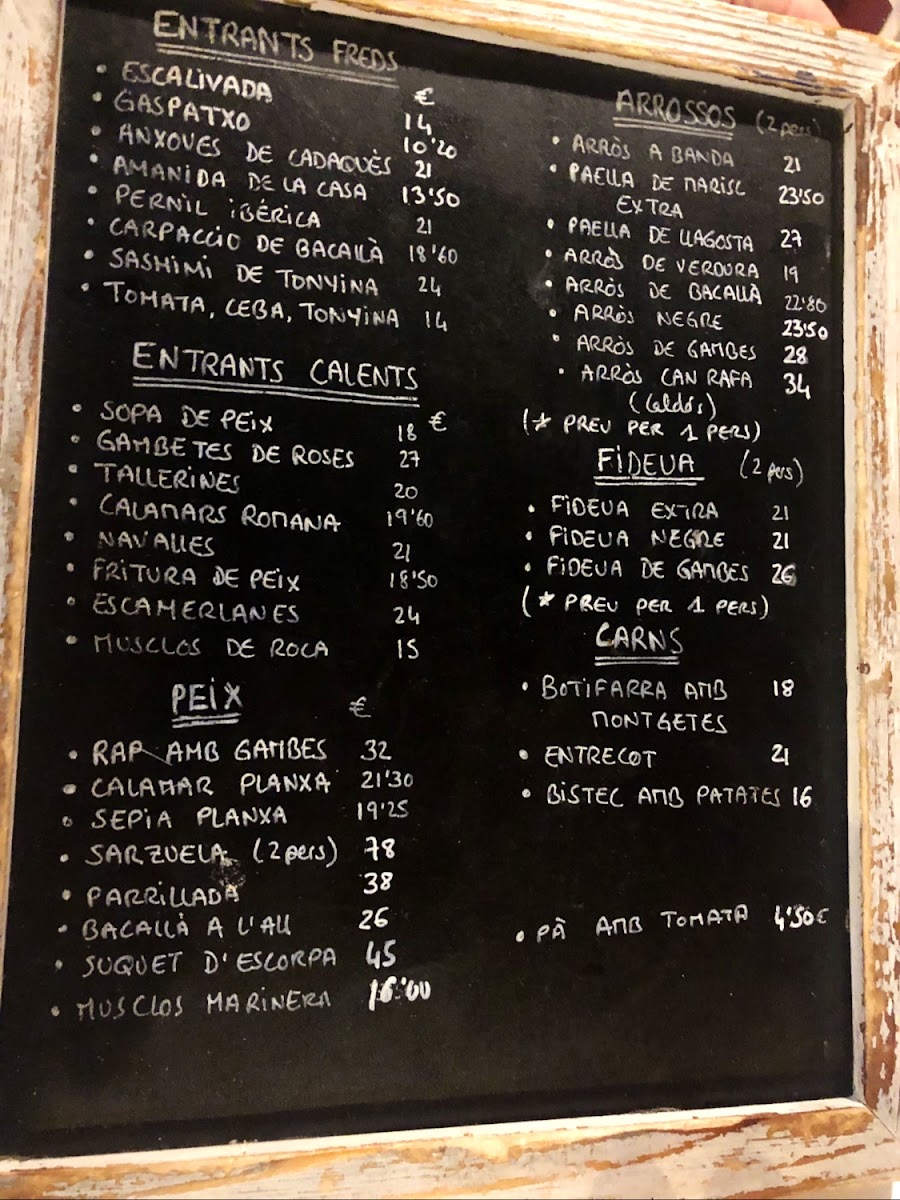 ENTRANTS FREDS
€
• ESCALIVADA 14
• GASPATXO 10'20
• ANXOVES DE CADAQUÈS 21
• AMANIDA DE LA CASA 13'50
• PERNIL IBÉRICA 21
• CARPACCIO DE BACALLÀ 18'60
• SASHIMI DE TONYINA 24
• TOMATA, CEBA, TONYINA 14
ENTRANTS CALENTS
€
• SOPA DE PEIX 18
• GAMBETES DE ROSES 27
• TALLERINES 20
• CALAMARS ROMANA 19'60
• NAVALLES 21
• FRITURA DE PEIX 18'50
• ESCAMERLANES 24
• MUSCLOS DE ROCA 15
PEIX €
• RAP AMB GAMBES 32
• CALAMAR PLANXA 21'30
• SEPIA PLANXA 19'25
• SARZUELA (2 pers) 78
• PARRILLADA 38
• BACALLÀ A L'ALL 26
• SUQUET D'ESCORPA 45
• MUSCLOS MARINERA 16'00
ARROSSOS (2 pers)
• ARRÒS A BANDA 21
• PAELLA DE MARISC 23'50
EXTRA
• PAELLA DE LLAGOSTA 27
• ARRÒS DE VERDURA 19
• ARRÒS DE BACALLÀ 22'80
• ARRÒS NEGRE 23'50
• ARRÒS DE GAMBES 28
• ARRÒS CAN RAFA 34
(Caldós)
(* PREU PER 1 PERS)
FIDEUA (2 pers)
• FIDEUA EXTRA 21
• FIDEUA NEGRE 21
• FIDEUA DE GAMBES 26
(* PREU PER 1 PERS)
CARNS
• BOTIFARRA AMB 18
MONTGETES
• ENTRECOT 21
• BISTEC AMB PATATES 16
• PÀ AMB TOMATA 4'50€